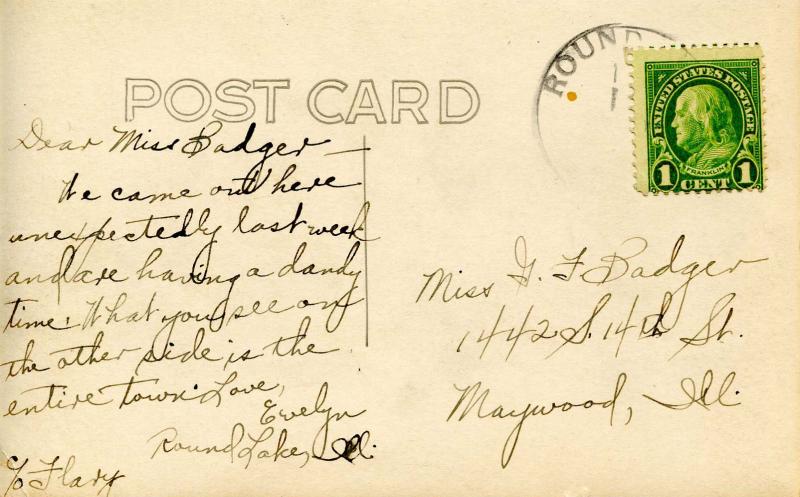 POST CARD
ROUND
UNITED STATES POSTAGE
FRANKLIN
1 CENT 1
Dear Miss Badger—
We came out here
unexpectedly last week
and are having a dandy
time. What you see on
the other side is the
entire town. Love,
Evelyn
Round Lake, Ill.
c/o Flary
Miss G. F Badger
1442 S. 14th St.
Maywood, Ill.